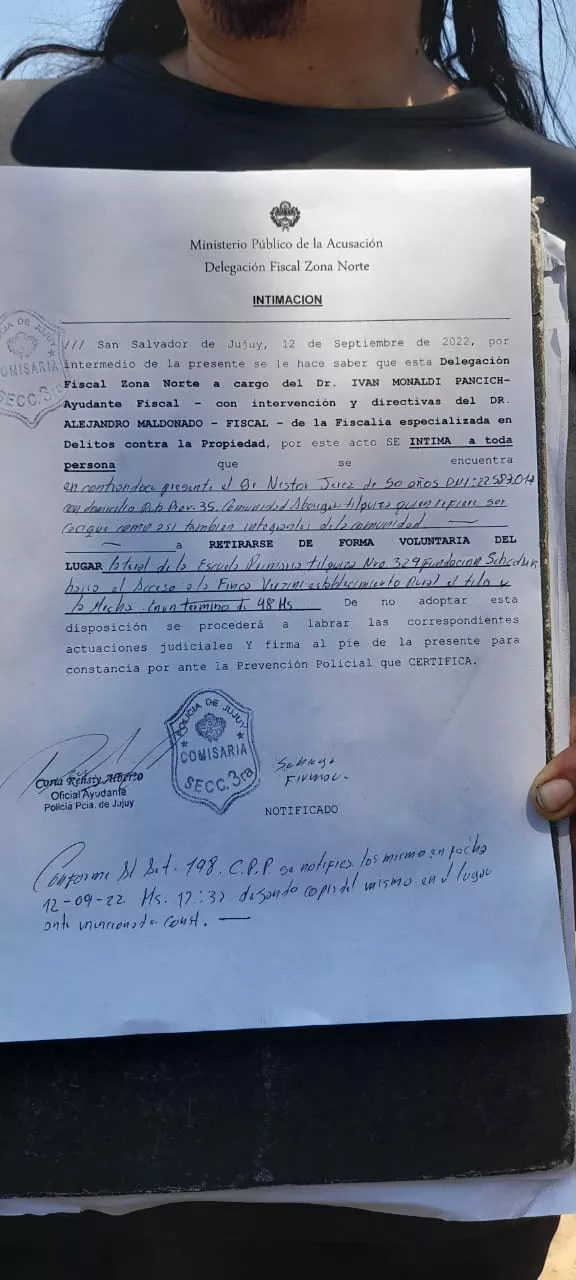 Ministerio Público de la Acusación
Delegación Fiscal Zona Norte
INTIMACION
/// San Salvador de Jujuy, 12 de Septiembre de 2022, por
intermedio de la presente se le hace saber que esta Delegación
Fiscal Zona Norte a cargo del Dr. IVAN MONALDI PANCICH-
Ayudante Fiscal - con intervención y directivas del DR.
ALEJANDRO MALDONADO - FISCAL - de la Fiscalía especializada en
Delitos contra la Propiedad, por este acto SE INTIMA a toda
persona que se encuentra
presente el Sr Nestor Jerez de 50 años DNI: 22583017
con domicilio Rub Prov. 35. Comunidad Aborigen tilquiza quien refiere ser
Cacique como asi tambien integrantes de la comunidad
a RETIRARSE DE FORMA VOLUNTARIA DEL
LUGAR lateral de la Escuela Primaria tilquiza Nro. 329 Fundacion
el Acceso a la Finca establecimiento Rural el tilo y
la Mecha. en un termino de 48 Hs De no adoptar esta
disposición se procederá a labrar las correspondientes
actuaciones judiciales Y firma al pie de la presente para
constancia por ante la Prevención Policial que CERTIFICA.
POLICIA DE JUJUY
COMISARIA
SECC. 3ra
Oficial Ayudante
Policía Pcia. de Jujuy
POLICIA DE JUJUY
COMISARIA
SECC. 3ra
Se niega
Firmar.
NOTIFICADO
Conforme al Art. 198. C.P.P se notifica los mismo en fecha
12-09-22 Hs. 12:32 dejando copia del mismo en el lugar
ante mencionado Const.